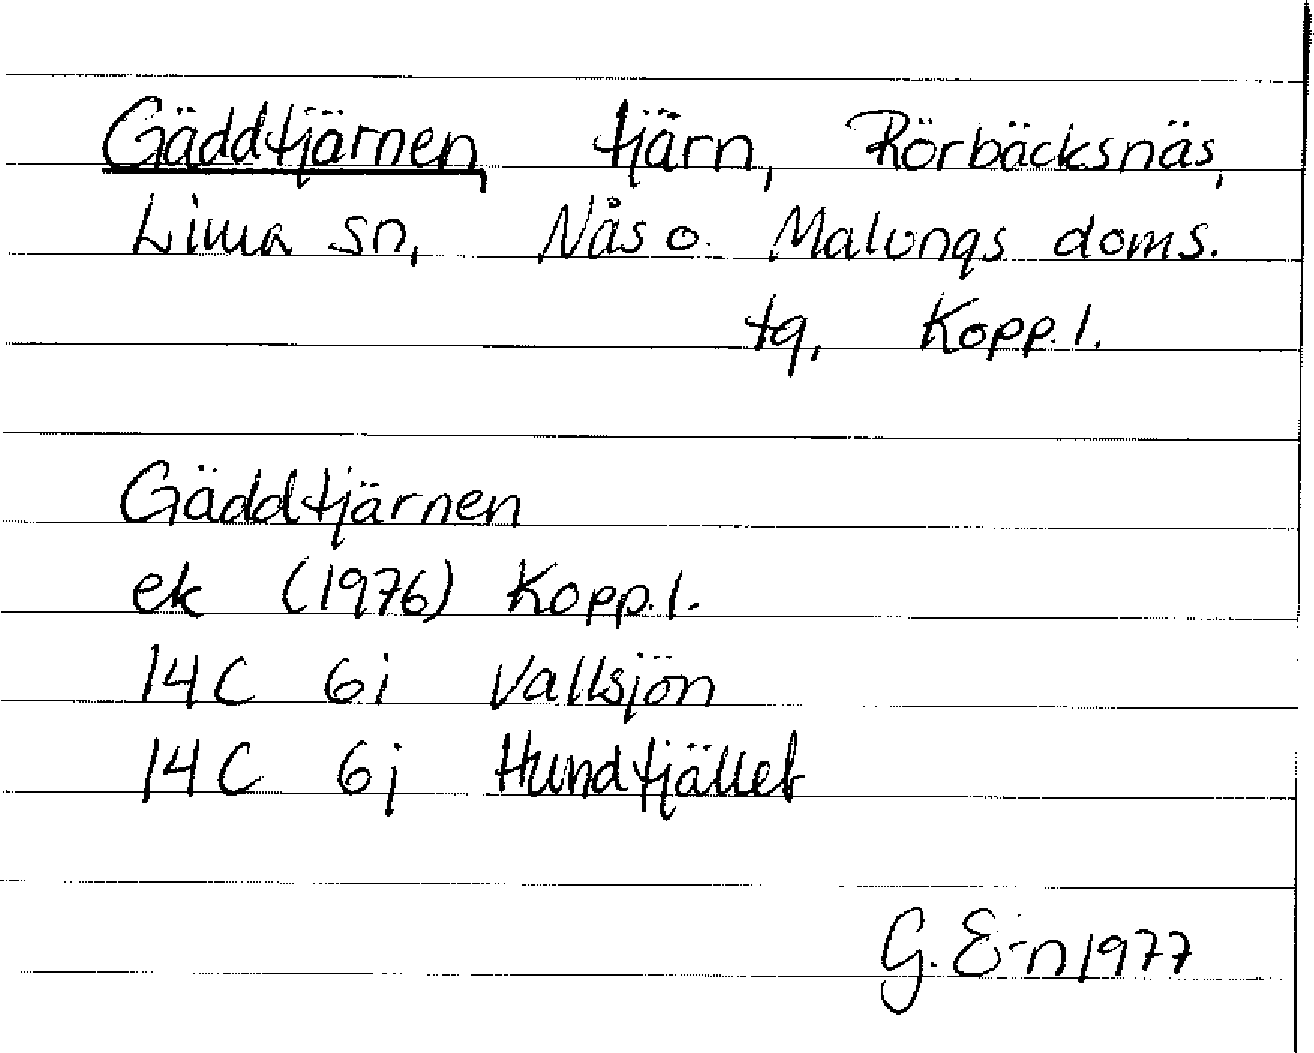 Gäddtjärnen, tjärn, Rörbäcksnäs,
Lima sn, Nås o. Malungs doms.
tg, Kopp. l.
Gäddtjärnen
ek (1976) Kopp. l.
14C 6i Vallsjön
14C 6j Hundfjället
G. E-n 1977